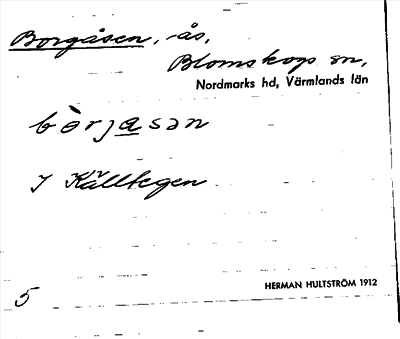 Borgåsen, ås,
Blomskogs sn,
Nordmarks hd, Värmlands län
bòrjasan
I Källtegen
HERMAN HULTSTRÖM 1912
5